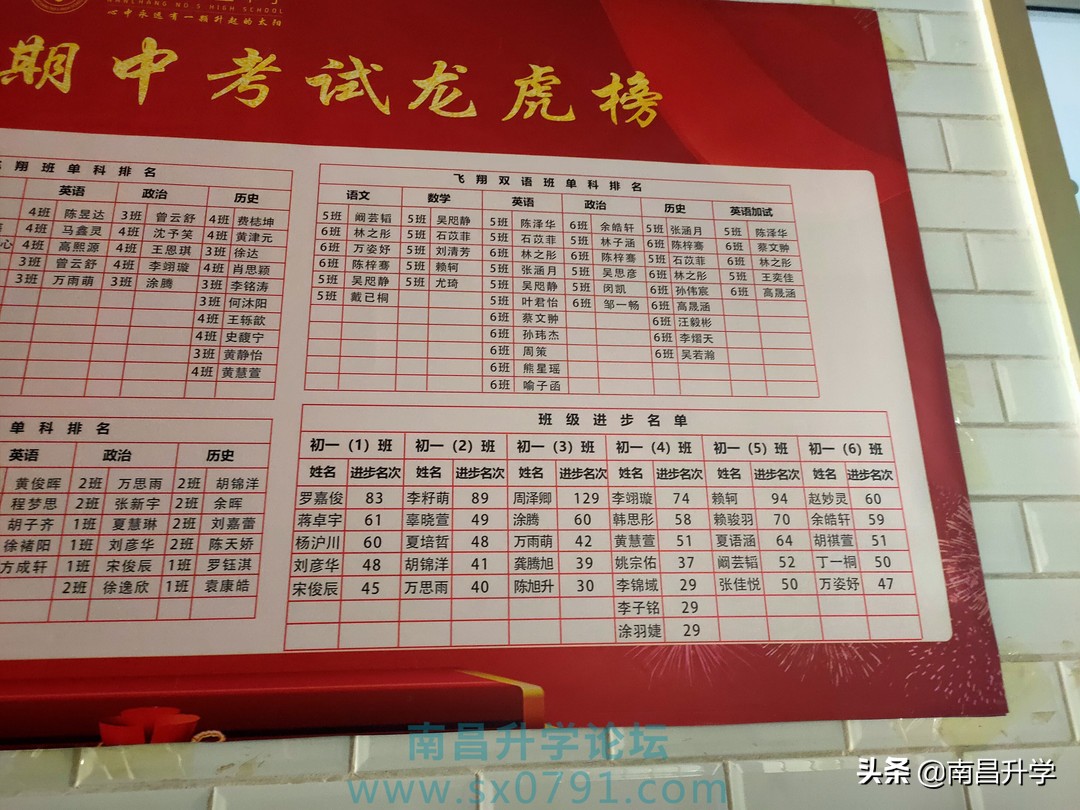 NANCHANG NO 5 HIGH SCHOOL
心中永远有一颗升起的太阳
期中考试龙虎榜
翔班单科排名
英语 政治 历史
4班 陈昱达 3班 曾云舒 4班 费梽坤
4班 马鑫灵 4班 沈予笑 4班 黄津元
心 4班 高熙源 4班 王恩琪 3班 徐达
3班 曾云舒 4班 李翊璇 4班 肖思颖
3班 万雨萌 3班 涂腾 3班 李铭涛
3班 何沐阳
4班 王轹歆
4班 史馥宁
3班 黄静怡
4班 黄慧萱
飞翔双语班单科排名
语文 数学 英语 政治 历史 英语加试
5班 阚芸韬 5班 吴咫静 5班 陈泽华 6班 余皓轩 5班 张涵月 5班 陈泽华
6班 林之彤 5班 石苡菲 5班 石苡菲 5班 林子涵 6班 陈梓骞 6班 蔡文翀
6班 万姿妤 5班 刘清芳 6班 林之彤 6班 陈梓骞 5班 石苡菲 6班 林之彤
6班 陈梓骞 5班 赖轲 5班 张涵月 5班 吴思彦 6班 林之彤 5班 王奕佳
5班 吴咫静 5班 尤琦 5班 吴咫静 5班 闵凯 6班 孙伟宸 6班 高晟涵
5班 戴已桐 5班 叶君怡 6班 邹一畅 6班 高晟涵
6班 蔡文翀 6班 汪毅彬
6班 孙玮杰 6班 李熠天
6班 周策 6班 吴若瀚
6班 熊星瑶
6班 喻子函
单科排名
英语 政治 历史
黄俊晖 2班 万思雨 2班 胡锦洋
程梦思 2班 张新宇 2班 余晖
胡子齐 1班 夏慧琳 2班 刘嘉蕾
徐褚阳 1班 刘彦华 2班 陈天娇
方成轩 1班 宋俊辰 1班 罗钰淇
2班 徐逸欣 1班 袁康皓
班级进步名单
初一（1）班 初一（2）班 初一（3）班 初一（4）班 初一（5）班 初一（6）班
姓名 进步名次 姓名 进步名次 姓名 进步名次 姓名 进步名次 姓名 进步名次 姓名 进步名次
罗嘉俊 83 李籽萌 89 周泽卿 129 李翊璇 74 赖轲 94 赵妙灵 60
蒋卓宇 61 辜晓萱 49 涂腾 60 韩思彤 58 赖骏羽 70 余皓轩 59
杨沪川 60 夏培哲 48 万雨萌 42 黄慧萱 51 夏语涵 64 胡祺萱 51
刘彦华 48 胡锦洋 41 龚腾旭 39 姚宗佑 37 阚芸韬 52 丁一桐 50
宋俊辰 45 万思雨 40 陈旭升 30 李锦域 29 张佳悦 50 万姿妤 47
李子铭 29
涂羽婕 29
南昌升学论坛
www.sx0791.com
头条 @南昌升学